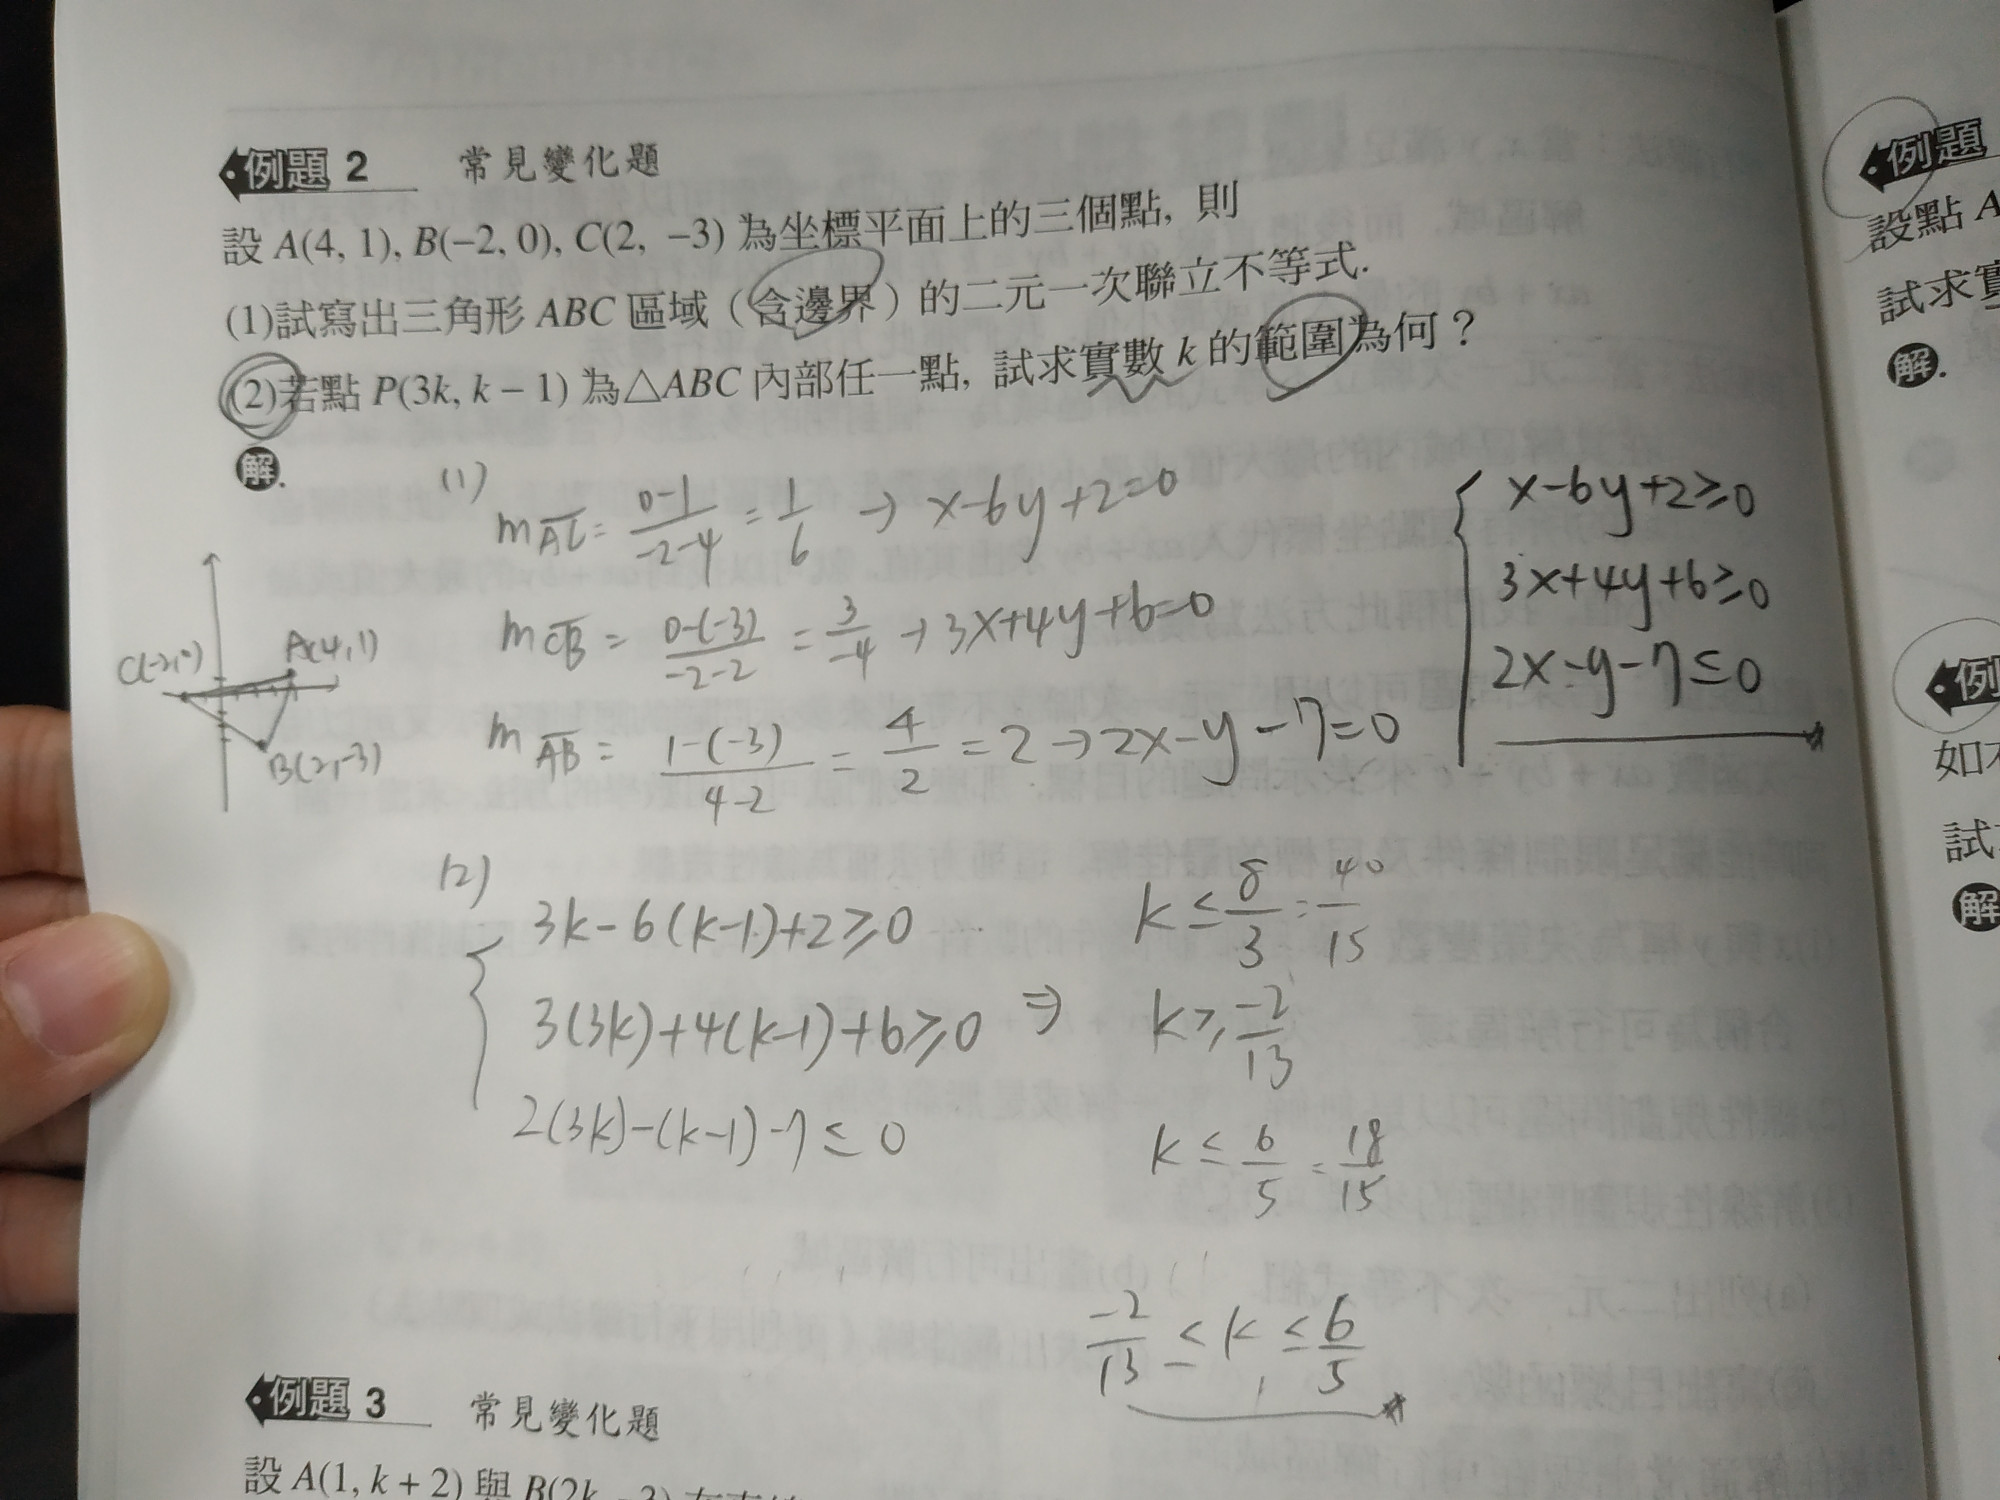 例題 2 常見變化題
設 A(4, 1), B(−2, 0), C(2, −3) 為坐標平面上的三個點, 則
(1)試寫出三角形 ABC 區域（含邊界）的二元一次聯立不等式.
(2)若點 P(3k, k − 1) 為△ABC 內部任一點, 試求實數 k 的範圍為何？
解.
(1)
m AC = 0-1 / -2-4 = 1/6 → x-6y+2=0
m CB = 0-(-3) / -2-2 = 3/-4 → 3x+4y+6=0
m AB = 1-(-3) / 4-2 = 4/2 = 2 → 2x-y-7=0
x-6y+2≥0
3x+4y+6≥0
2x-y-7≤0
A(4,1)
C(-2,0)
B(2,-3)
(2)
3k-6(k-1)+2≥0
3(3k)+4(k-1)+6≥0 ⇒
2(3k)-(k-1)-7≤0
k≤8/3=40/15
k≥-2/13
k≤6/5=18/15
-2/13≤k≤6/5
例題 3 常見變化題
設 A(1, k + 2) 與
例題
設點 A
試求實
解.
例
如
試
解